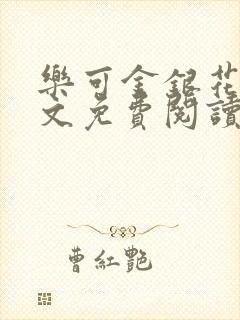 樂可金銀花
文免費閱讀
曹紅艷